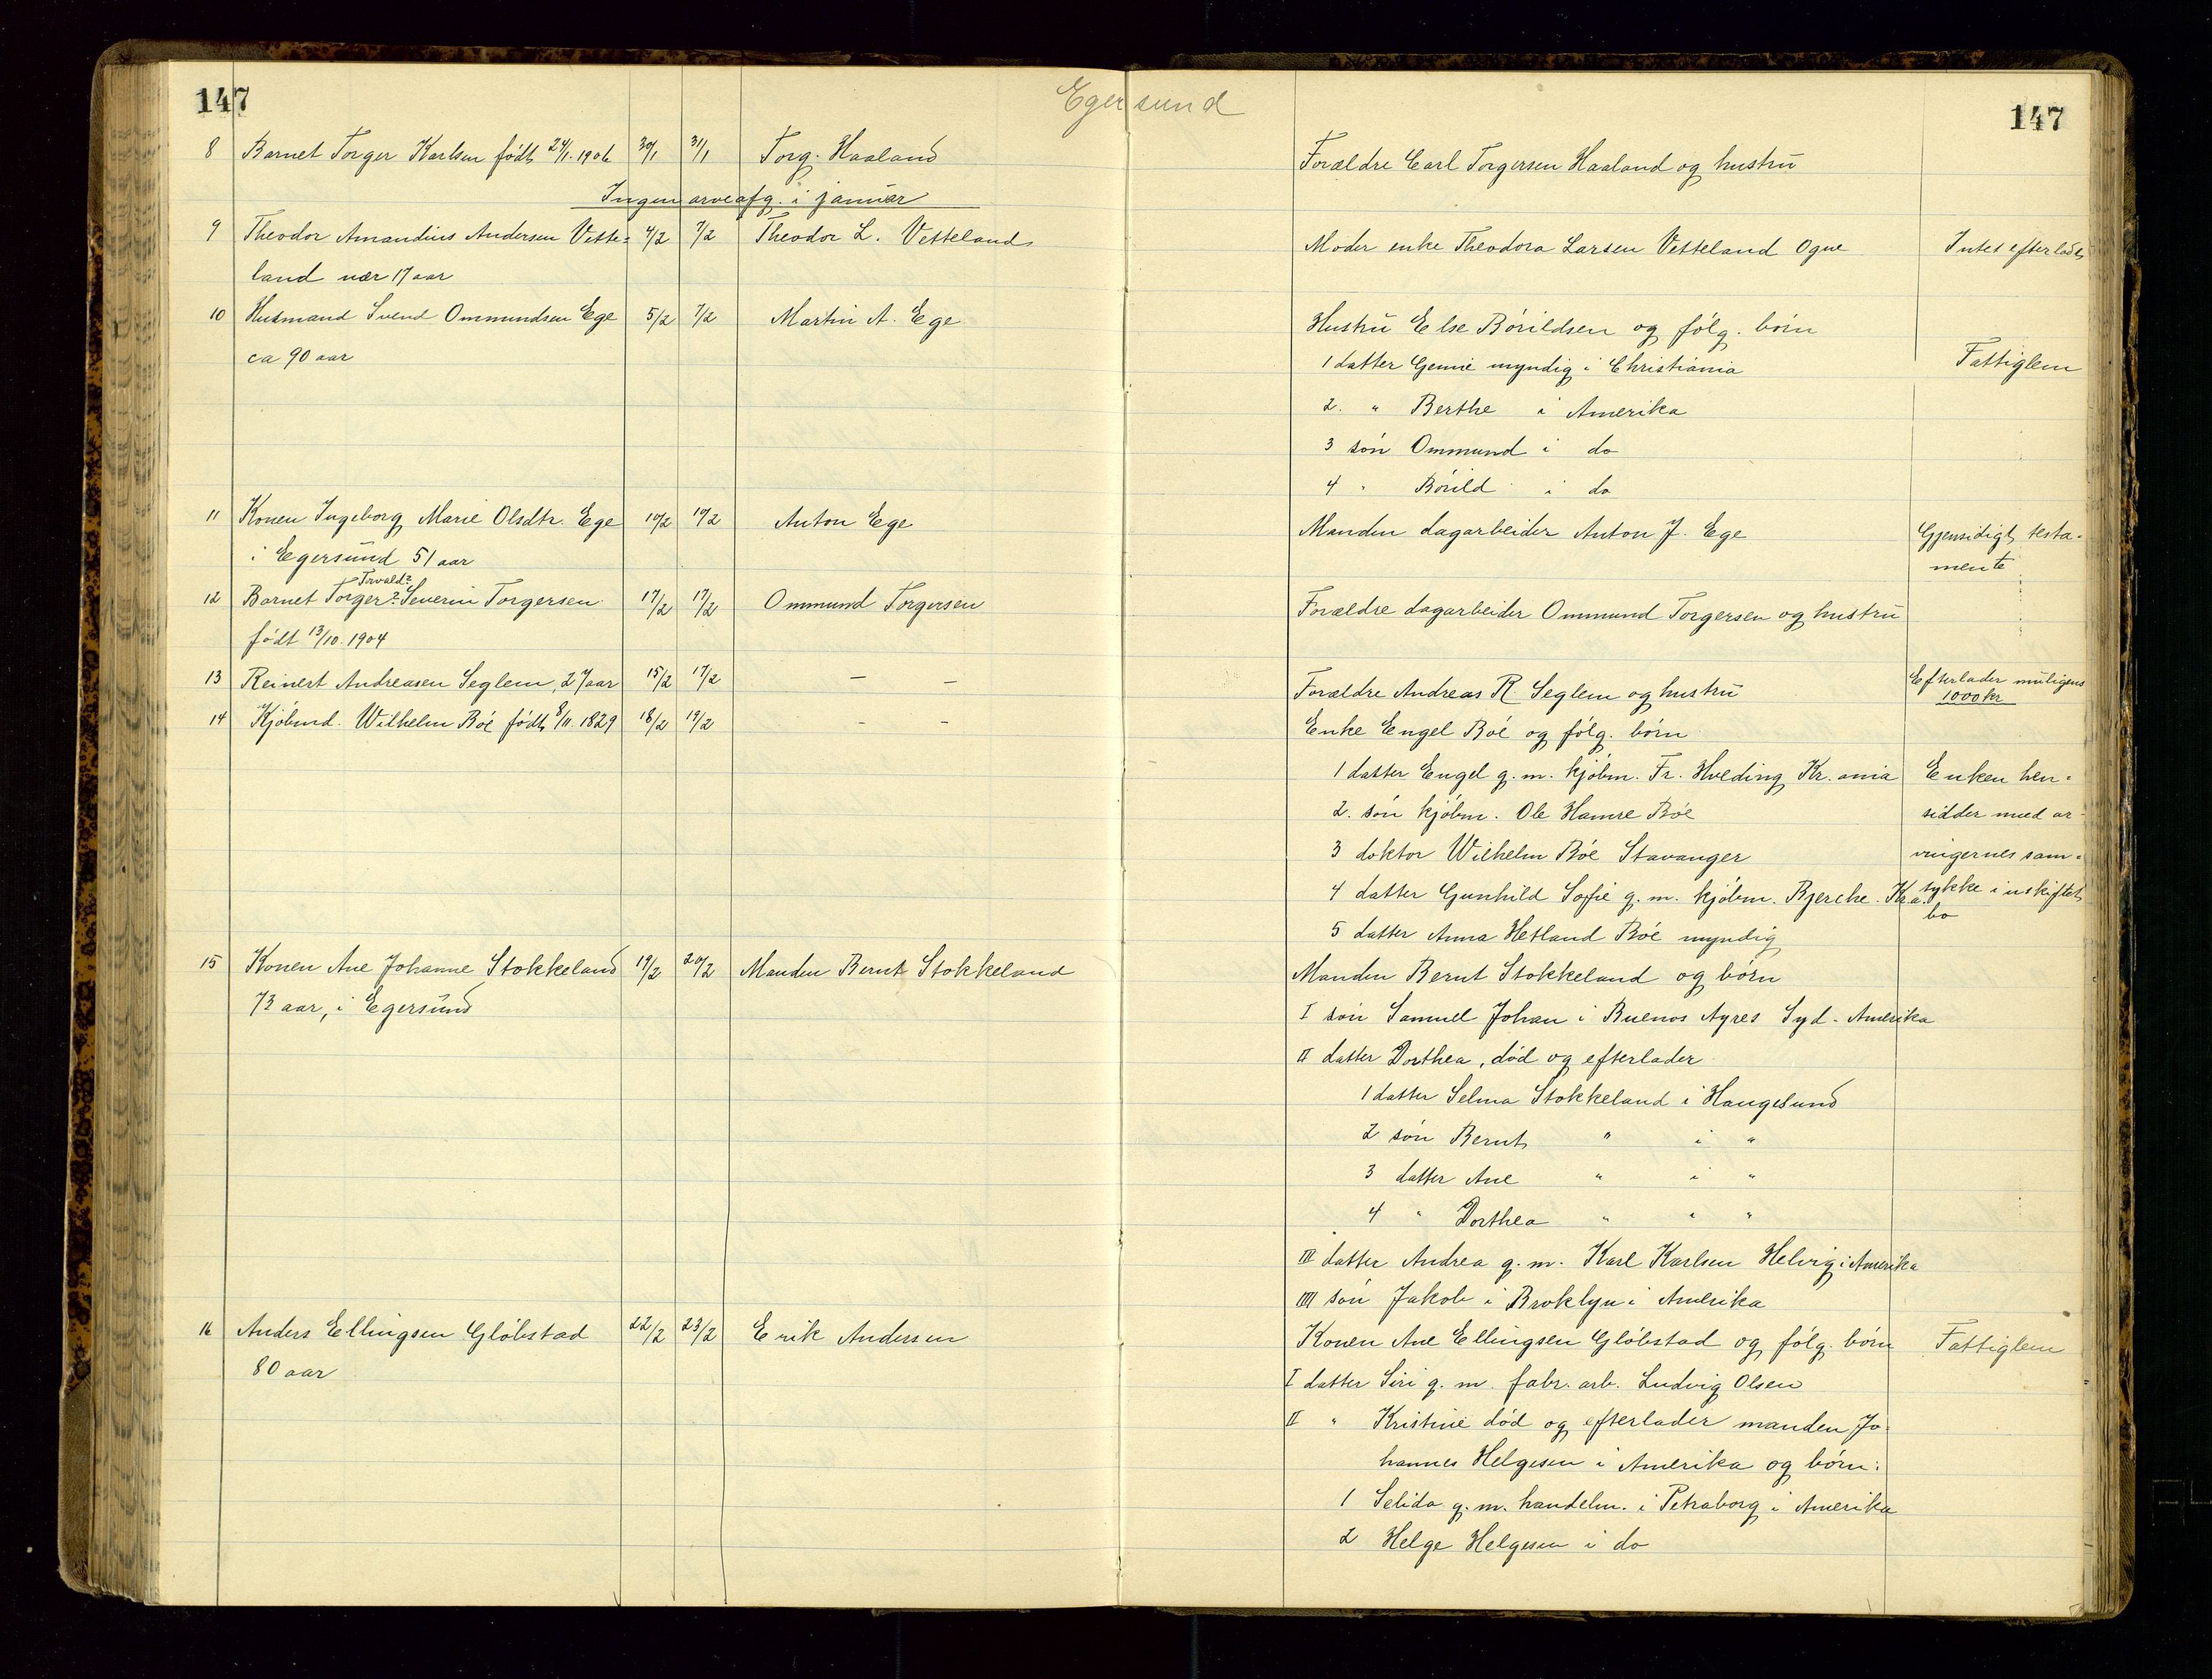 147
Egersund
147
8 Barnet Torger Karlsen født 24/1. 1906 30/1 31/1 Torg. Haaland
Forældre Carl Torgersen Haaland og hustru
Ingen arveafg. i januar
9 Theodor Amandius Andersen Vette= 4/2 7/2 Theodor L. Vetteland
land nær 17 aar
Moder enke Theodora Larsen Vetteland Ogne
Intet efterladt
10 Husmand Svend Ommundsen Ege 5/2 7/2 Martin A. Ege
ca 90 aar
Hustru Else Bórildsen og fólg. bórn
1 datter Genie myndig i Christiania
Fattiglem
2. " Berthe i Amerika
3 són Ommund i do
4 " Bórild i do
11 Konen Ingeborg Marie Olsdtr. Ege 10/2 10/2 Anton Ege
i Egersund 51 aar
Manden dagarbeider Anton J. Ege
Gjensidigt testa-
mente
Torvald?
12 Barnet Torger? Severin Torgersen 17/2 17/2 Ommund Torgersen
født 13/10. 1904
Forældre dagarbeider Ommund Torgersen og hustru
13 Reinert Andreasen Seglem, 27 aar 15/2 17/2 — —
Forældre Andreas R. Seglem og hustru
Efterlader muligens
1000 kr
14 Kjóbmd. Wilhelm Bóe født 8/11. 1829 18/2 19/2 - -
Enke Engel Bóe og fólg. bórn
1 datter Engel g. m. kjóbm. Fr. Hveding Kr.ania
2. són kjóbm. Ole Hamre Bóe
3 doktor Wilhelm Bóe Stavanger
4 datter Gunhild Sofie g. m. kjóbm. Bjerche. Kr.a.
5 datter Anna Hetland Bóe myndig
Enken hen=
sidder med ar-
vingernes sam=
tykke i uskiftet
bo
15 Konen Ane Johanne Stokkeland 19/2 20/2 Manden Bernt Stokkeland
73 aar, i Egersund
Manden Bernt Stokkeland og bórn
I són Samuel Johan i Buenos Ayres Syd-Amerika
II datter Dorthea, død og efterlader
1 datter Selma Stokkeland i Haugesund
2 són Bernt " i "
3 datter Ane " i "
4 " Dorthea " " "
III datter Andrea g. m. Karl Karlsen Helvig i Amerika
IIII són Jakob i Broklyn i Amerika
16 Anders Ellingsen Glóbstad 22/2 23/2 Erik Andersen
80 aar
Konen Ane Ellingsen Glóbstad og fólg. bórn
Fattiglem
I datter Siri g. m. fabr. arb. Ludvig Olsen
II " Kristine død og efterlader manden Jo-
hannes Helgesen i Amerika og bórn:
1 Selida g. m. handelm. i Petraborg i Amerika
2 Helge Helgesen i do